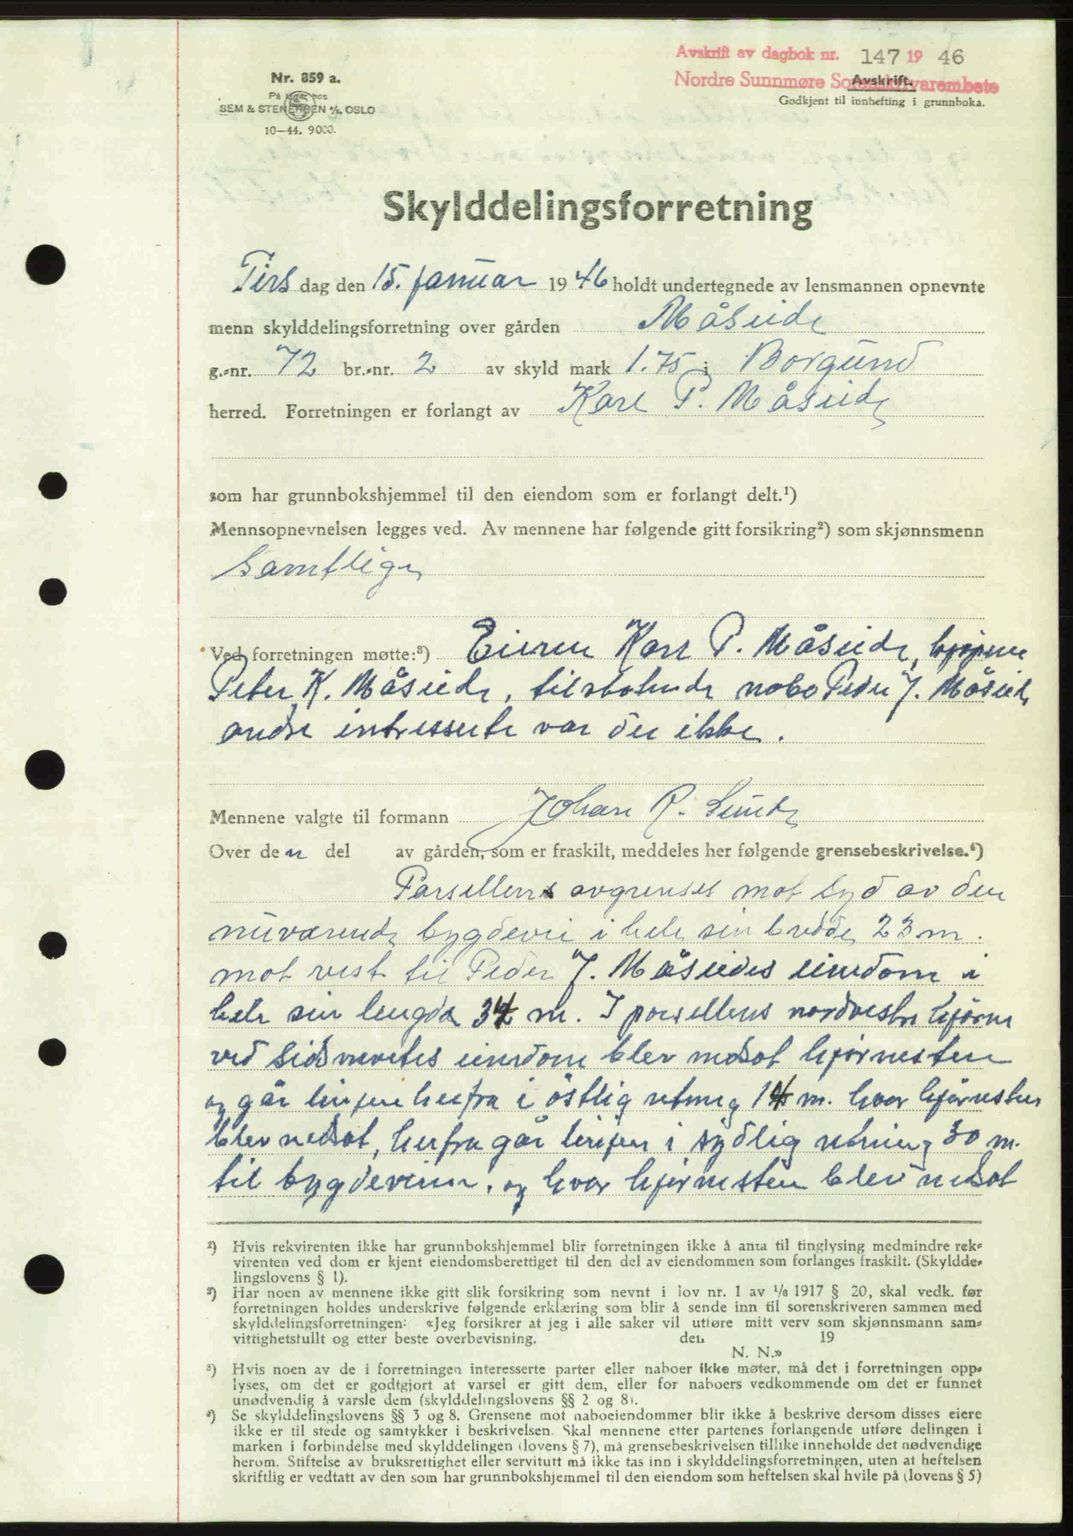 Avskrift av dagbok nr. 147 19 46
Nordre Sunnmøre Sorenskrivarembete
Avskrift.
Godkjent til innhefting i grunnboka.
Nr. 859 a.
På lager hos
SEM & STENERSEN A/S. OSLO
10—44. 9000.
Skylddelingsforretning
Tirs dag den 15. januar 19 46 holdt undertegnede av lensmannen opnevnte
menn skylddelingsforretning over gården Måseide
g.-nr. 72 br.-nr. 2 av skyld mark 1.75 i Borgund
herred. Forretningen er forlangt av Karl P. Måseide
som har grunnbokshjemmel til den eiendom som er forlangt delt.¹)
Mennsopnevnelsen legges ved. Av mennene har følgende gitt forsikring²) som skjønnsmenn
Samtlige
Ved forretningen møtte:³) Eieren Karl P. Måseide,
Peter K. Måseide, tilstøtende nabo Peder J. Måseide
andre intresserte var der ikke.
Mennene valgte til formann Johan R. Sunde
Over den del av gården, som er fraskilt, meddeles her følgende grensebeskrivelse.⁴)
Parsellen avgrenses mot syd av den
nuværende bygdevei i hele sin bredde 23 m.
mot vest til Peder J. Måseides eiendom i
hele sin lengde 34 m. I parsellens nordvestre hjørne
ved sidsnevntes eiendom blev nedsat hjørnesten
og går linjen herfra i östlig retning 14 m. hvor hjørnesten
blev nedsat, herfra går linjen i sydlig retning 30 m.
til bygdeveien, og hvor hjørnesten blev nedsat
¹) Hvis rekvirenten ikke har grunnbokshjemmel blir forretningen ikke å anta til tinglysing medmindre rek-
virenten ved dom er kjent eiendomsberettiget til den del av eiendommen som forlanges fraskilt. (Skyldde-
lingslovens § 1).
²) Har noen av mennene ikke gitt slik forsikring som nevnt i lov nr. 1 av 1/6 1917 § 20, skal vedk. før
forretningen holdes underskrive følgende erklæring som blir å sende inn til sorenskriveren sammen med
skylddelingsforretningen: «Jeg forsikrer at jeg i alle saker vil utføre mitt verv som skjønnsmann sam-
vittighetsfullt og etter beste overbevisning. den 19
N. N.»
³) Hvis noen av de i forretningen interesserte parter eller naboer ikke møter, må det i forretningen opp-
lyses, om det er godtgjort at varsel er gitt dem, eller for naboers vedkommende om det er funnet
unødvendig å varsle dem (skylddelingslovens §§ 2 og 8).
⁴) Se skylddelingslovens §§ 3 og 8. Grensene mot naboeiendommer blir ikke å beskrive dersom disses eiere
ikke er til stede og samtykker i beskrivelsen. Skal mennene etter partenes forlangende utføre delingen i
marken i forbindelse med skylddelingen (lovens § 7), må grensebeskrivelsen tillike inneholde det nødvendige
herom. Stiftelse av bruksrettighet eller servitutt må ikke tas inn i skylddelingsforretningen, uten at heftelsen
skriftlig er vedtatt av den som har grunnbokshjemmel til den eiendom som heftelsen skal hvile på (lovens § 5)